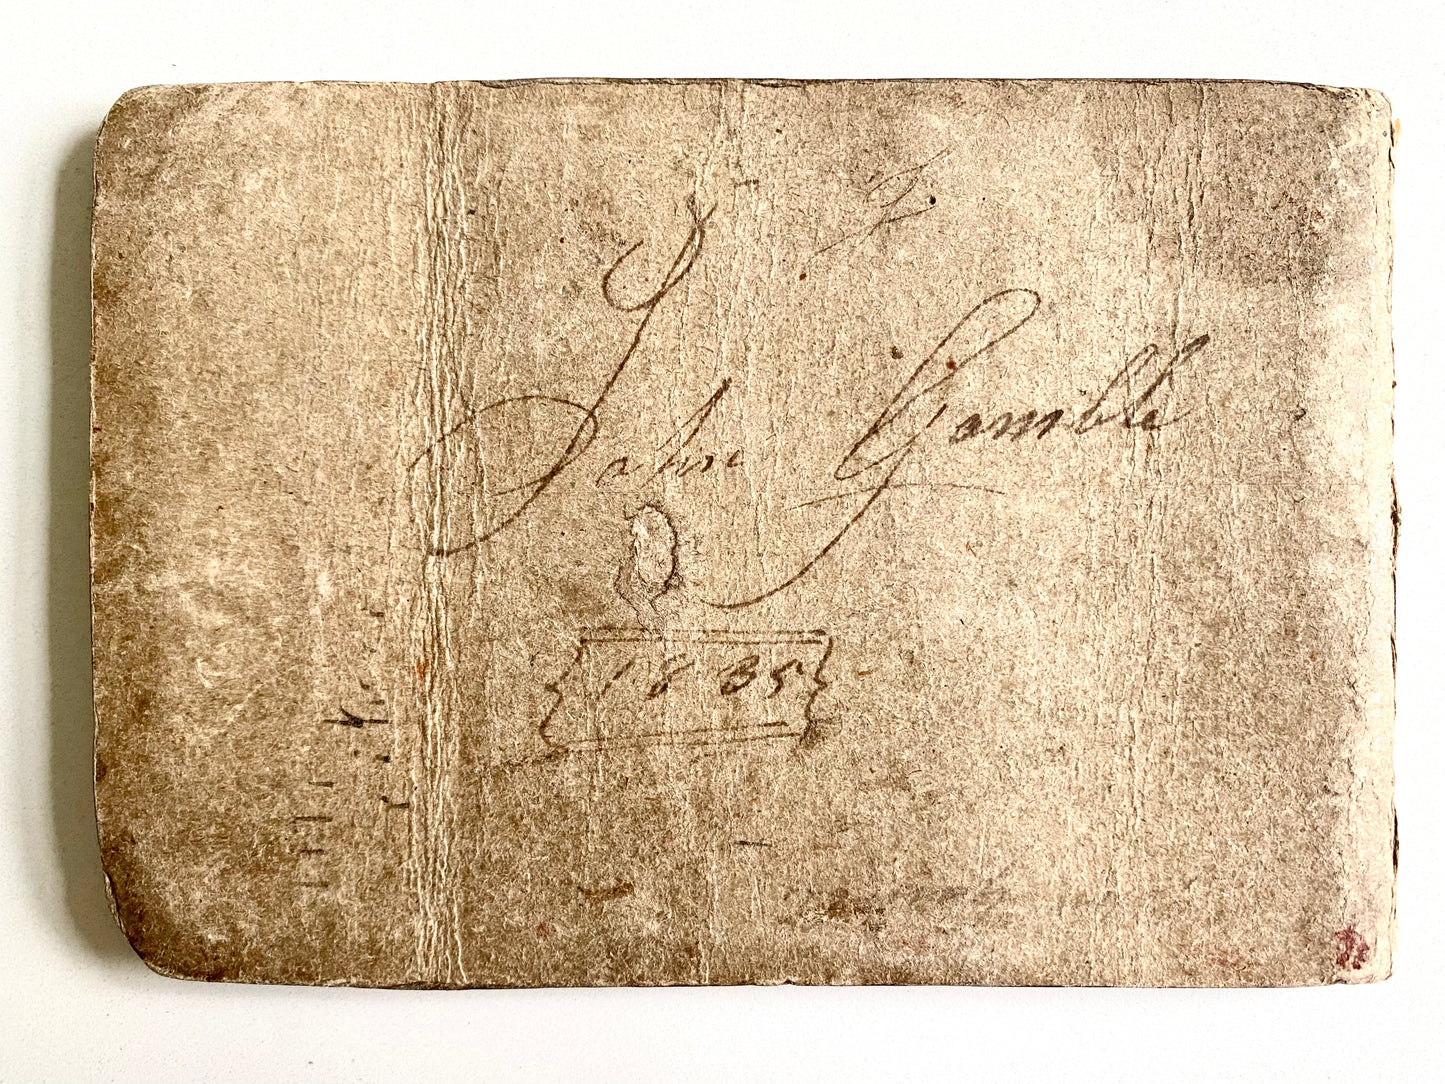 John Gamble
1835